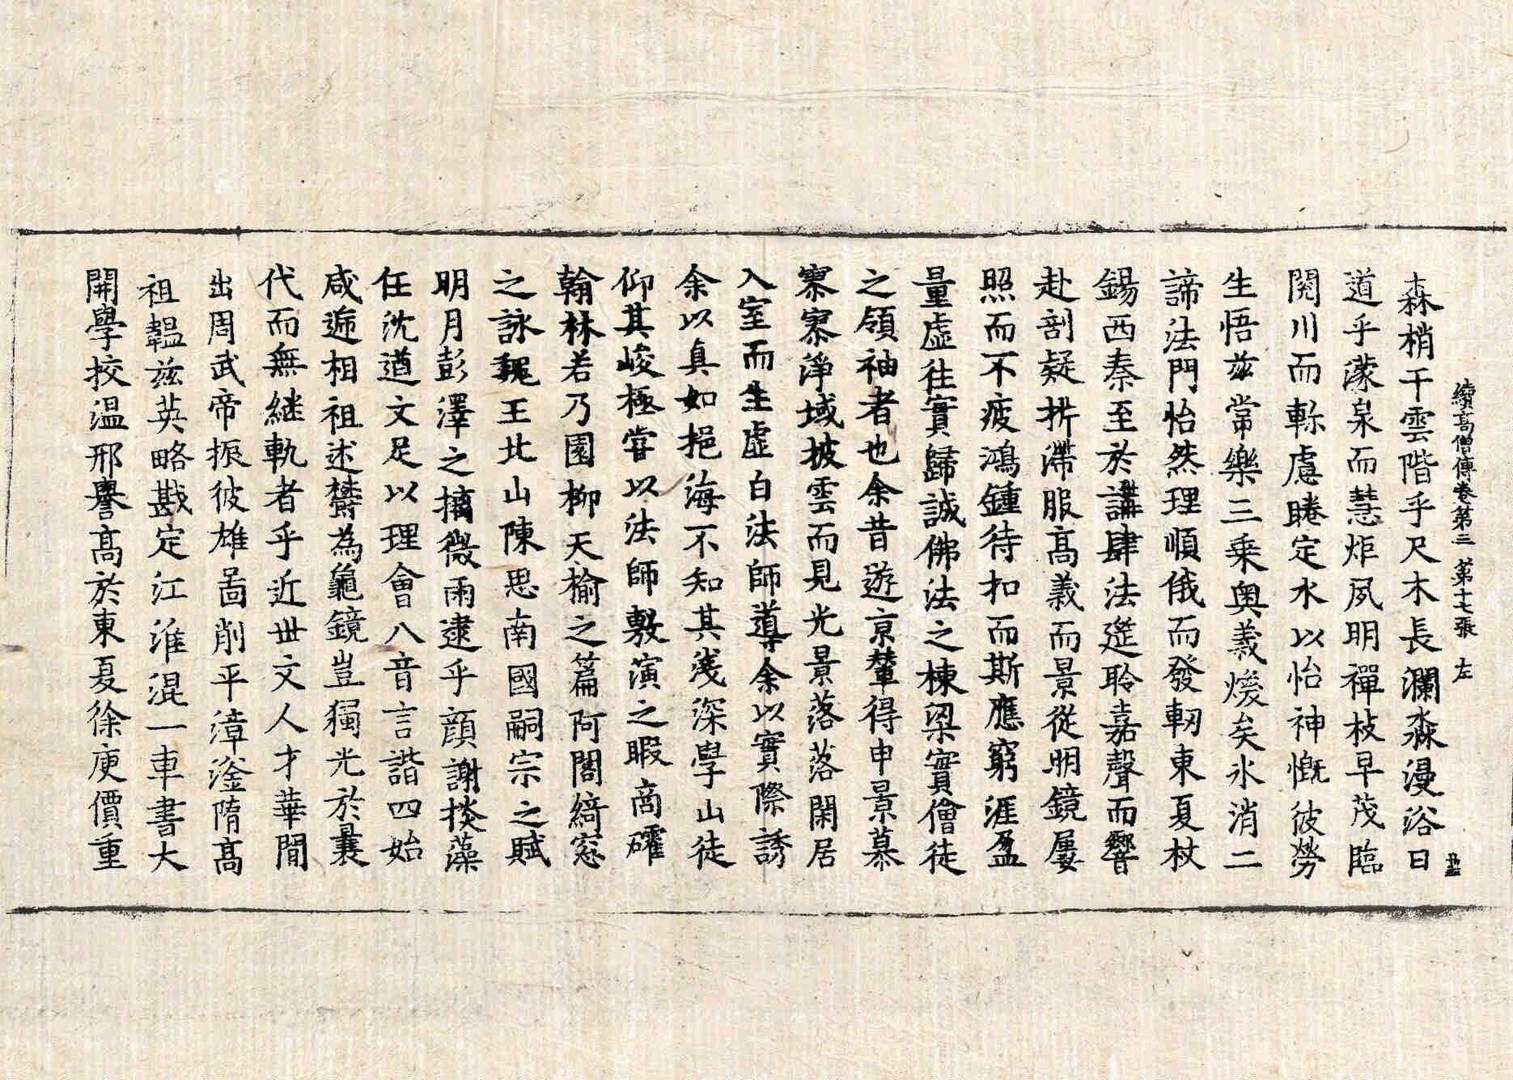 續高僧傳卷第三 第十七張 左
森梢干雲階乎尺木長瀾淼漫浴日
道乎濛泉而慧炬夙明禪枝早茂臨
閱川而軫慮睠定水以怡神慨彼勞
生悟茲常樂三乘奧義煥矣氷消二
諦法門怡然理順俄而發軔東夏杖
錫西秦至於講肆法筵聆嘉聲而響
赴剖疑折滯服高義而景從明鏡屢
照而不疲鴻鍾待扣而斯應窮涯盈
量虛往實歸誠佛法之棟梁實僧徒
之領袖者也余昔遊京輦得申景慕
寮寀淨域披雲而見光景落落閑居
入室而生虛白法師導余以實際誘
余以真如挹海不知其淺深學山徒
仰其峻極嘗以法師敷演之暇商確
翰林若乃園柳天榆之篇阿閣綺窓
之詠魏王北山陳思南國嗣宗之賦
明月彭澤之摛微雨逮乎顔謝掞藻
任沈遒文足以理會八音言諧四始
咸遞相祖述欝為龜鏡豈獨光於曩
代而無繼軌者乎近世文人才華間
出周武帝振彼雄啚削平漳滏隋高
祖韞茲英略戡定江淮混一車書大
開學挍溫邢譽高於東夏徐庾價重